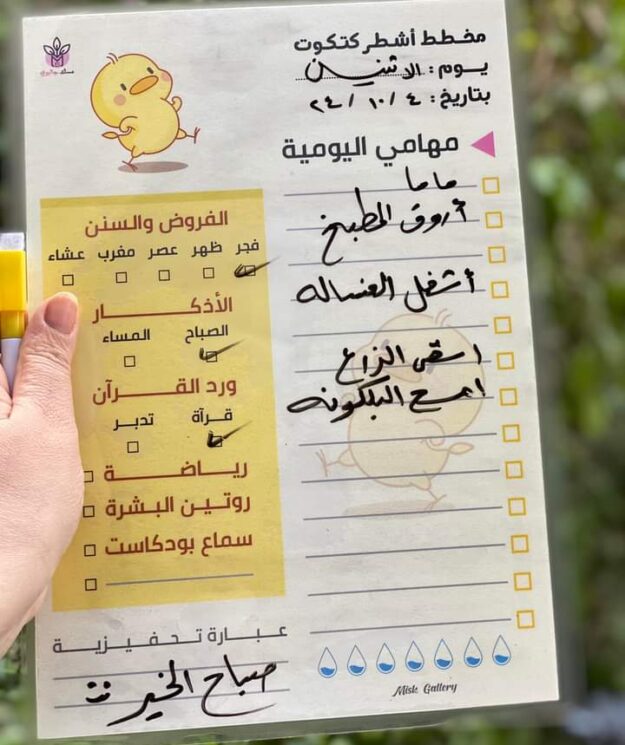 مخطط أشطر كتكوت
يوم: الاثنين
بتاريخ: ٤ / ١٠ / ٢٤
مهامي اليومية
ماما
أروق المطبخ
أشغل الغساله
اسقي الزراع
امسح البلكونه
الفروض والسنن
فجر ظهر عصر مغرب عشاء
الأذكــــار
الصباح المساء
ورد القـــرآن
قرآة تدبر
ريـــاضـــة
روتـين البشرة
سماع بودكاست
عـبـارة تـحـفـيـزيـة
صباح الخير
Misk Gallery